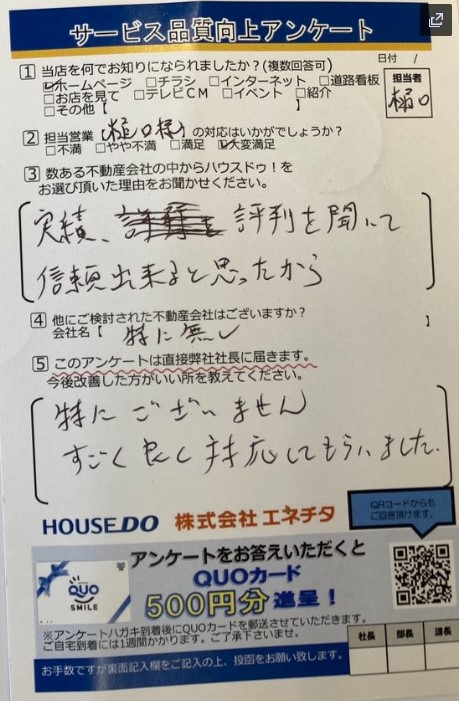 サービス品質向上アンケート
日付　/
1 当店を何でお知りになられましたか?(複数回答可)
☑ホームページ □チラシ □インターネット □道路看板
□お店を見て □テレビCM □イベント □紹介
□その他【　】
担当者
樋口
2 担当営業(樋口様)の対応はいかがでしょうか?
□不満 □やや不満 □満足 ☑大変満足
3 数ある不動産会社の中からハウスドゥ!を
お選び頂いた理由をお聞かせください。
実績、評判を聞いて
信頼出来ると思ったから
4 他にご検討された不動産会社はございますか?
会社名【 特に無し 】
5 このアンケートは直接弊社社長に届きます。
今後改善した方がいい所を教えてください。
特にございません
すごく良く対応してもらいました.
HOUSE DO 株式会社 エネチタ
QRコードからも
ご回答頂けます。
アンケートをお答えいただくと
QUOカード
500円分進呈!
QUO
SMILE
※アンケートハガキ到着後にQUOカードを郵送させていただきます。
ご自宅到着には1週間かかります。ご了承下さいませ。
社長 部長 課長
お手数ですが裏面記入欄をご記入の上、投函をお願い致します。